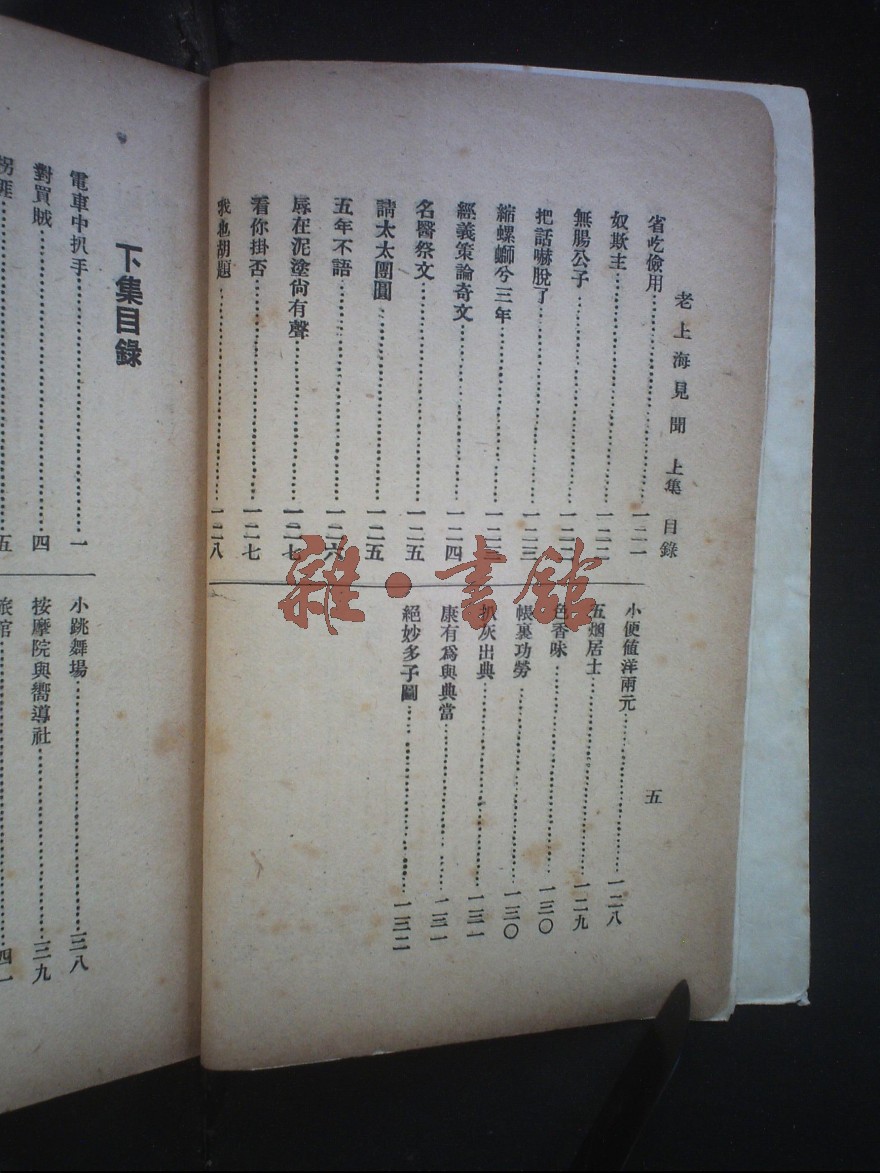 老上海見聞 上集 目錄 五
省吃儉用……一二一
奴欺主……一二二
無腸公子……一二二
把話嚇脫了……一二三
縮螺螄兮三年……一二三
經義策論奇文……一二四
名醫祭文……一二五
請太太團圓……一二五
五年不語……一二六
辱在泥塗尙有聲……一二七
看你掛否……一二七
我也胡題……一二八
小便値洋兩元……一二八
五烟居士……一二九
色香味……一三〇
帳裏功勞……一三〇
扒灰出典……一三一
康有爲與典當……一三一
絕妙多子圖……一三二
雜·書館
下集目錄
電車中扒手……一
對買賊……四
拐誑……五
小跳舞場……三八
按摩院與嚮導社……三九
旅館……四一